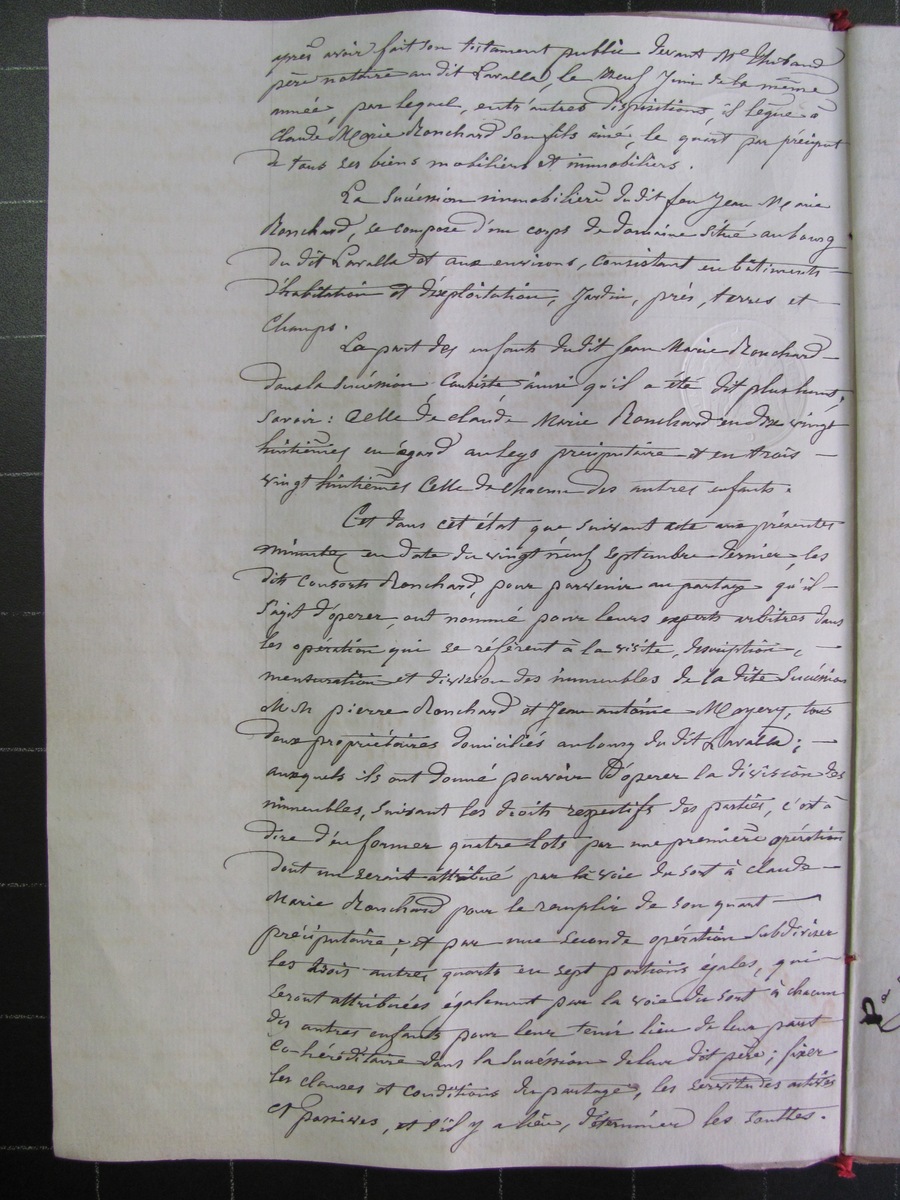 après avoir fait son testament public devant Me Thibaud
père notaire au dit Lavalla, le neuf Juin de la même
année, par lequel, entr'autres dispositions, il lègue à
Claude Marie Ronchard son fils ainé, le quart par préciput
de tous ses biens mobiliers et immobiliers.
La Succession immobilière du dit feu Jean Marie
Ronchard, se compose d'un corps de domaine situé au bourg
du dit Lavalla et aux environs, consistant en bâtiments
d'habitation et d'exploitation, Jardin, prés, terres et
Champs.
La part des enfants du dit Jean Marie Ronchard
dans la succession consiste ainsi qu'il a été dit plus haut,
Savoir: Celle de claude Marie Ronchard en dix vingt
huitièmes en égard au legs preciputaire et en trois
vingt huitièmes Celle de chacun des autres enfants.
C'est dans cet état que suivant acte aux présentes
minutes en date du vingt neuf Septembre dernier, les
dits consorts Ronchard, pour parvenir au partage qu'il
s'agit d'operer, ont nommé pour leurs experts arbitres dans
les opération qui se réfèrent à la visite, description,
mensuration et division des immeubles de la dite Succession
M.M pierre Ronchard et Jean antoine Mayery, tous
deux propriétaires domiciliés au bourg du dit Lavalla;
auxquels ils ont donné pouvoir d'operer la division des
immeubles, suivant les droits respectifs des parties, c'est à
dire d'en former quatre lots par une première opération
dont un serait attribué par la voie du sort à claude
Marie Ronchard pour le remplir de son quart
préciputaire; et par une seconde opération subdiviser
les trois autres quarts en sept portions égales, qui
seront attribuées également par la voie du sort à chacun
des autres enfants pour leur tenir lieu de leur part
co-héréditaire dans la succession de leur dit père; fixer
les clauses et conditions du partage, les servitudes actives
et passives, et s'il y a lieu, déterminer les soulttes.